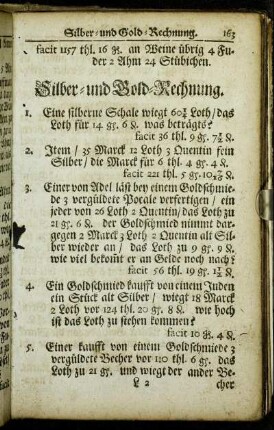 Silber- und Gold-Rechnung. 163
facit 1157 thl. 16 gr. an Weine übrig 4 Fu-
der 2 Ahm 24 Stübichen.
Silber- und Gold-Rechnung.
1. Eine silberne Schale wiegt 60¾ Loth/das
Loth für 14 gr. 6 ₰. was beträgts?
facit 36 thl. 9 gr. 7½ ₰.
2. Item/ 35 Marck 12 Loth 3 Quentin fein
Silber/ die Marck für 6 thl. 4 gr. 4 ₰.
facit 221 thl. 5 gr.
3. Einer von Adel läst bey einem Goldschmie-
de 3 vergüldete Pocale verfertigen/ ein
jeder von 26 Loth 2 Quentin/das Loth zu
21 gr. 6 ₰. der Goldschmied nimmt dar-
gegen 2 Marck 3 Loth 2 Quentin alt Sil-
ber wieder an/ das Loth zu 9 gr. 9 ₰.
wie viel bekomt er an Gelde noch nach?
facit 56 thl. 19 gr. 1½ ₰.
4. Ein Goldschmied kaufft von einem Juden
ein Stück alt Silber/ wiegt 18 Marck
2 Loth vor 124 thl. 20 gr. 8 ₰. wie hoch
ist das Loth zu stehen kommen?
facit 10 gr. 4 ₰.
5. Einer kaufft von einem Goldschmiede 3
vergüldete Becher vor 110 thl. 6 gr. das
Loth zu 21 gr. und wiegt der ander Be-
L 2 cher